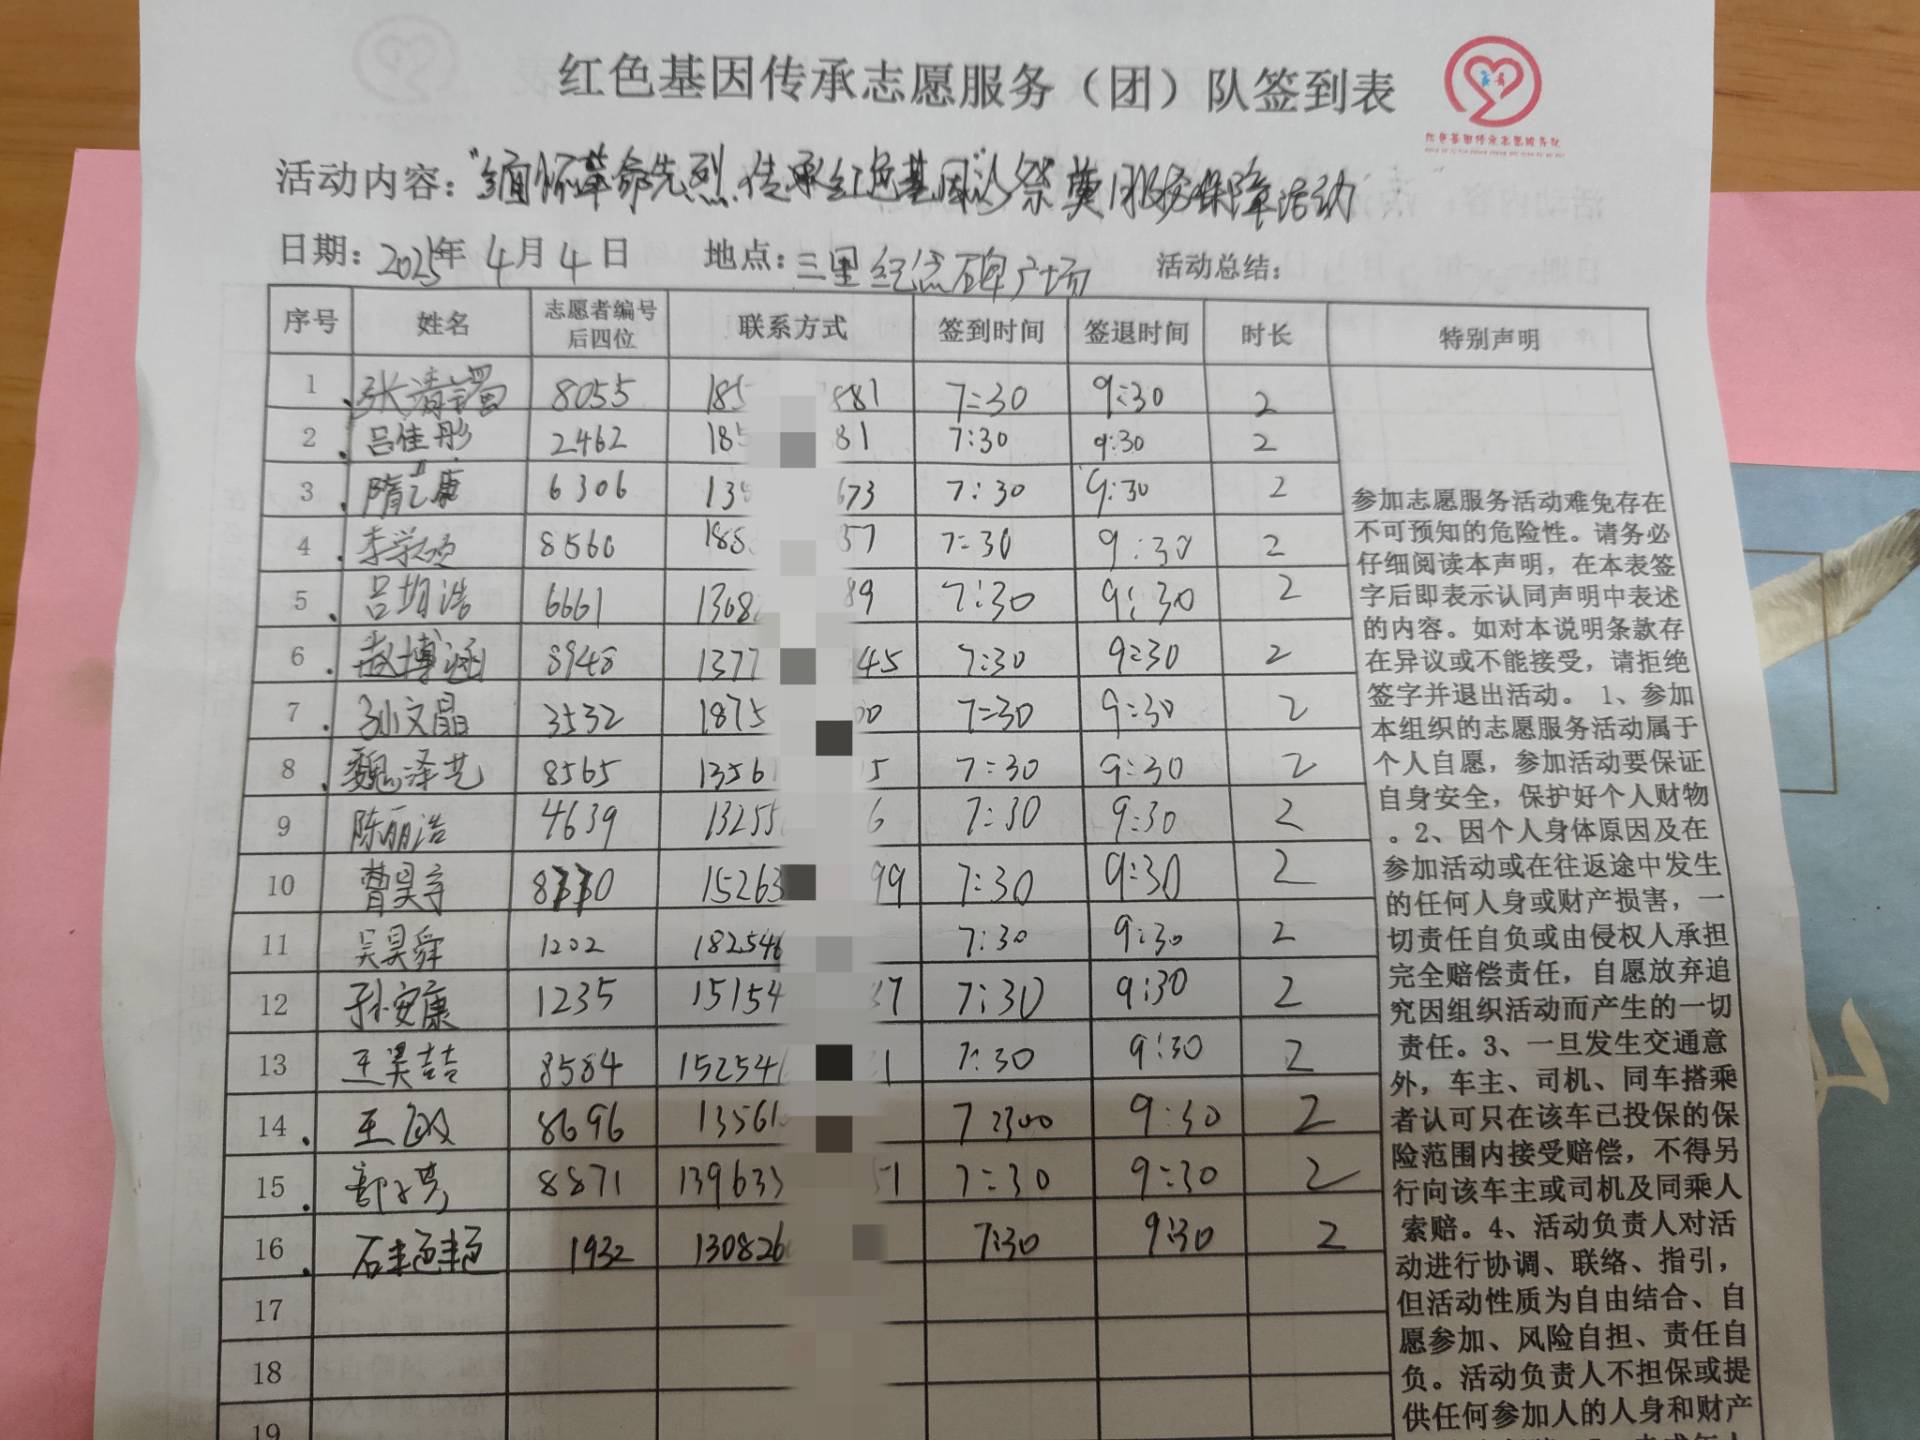 红色基因传承志愿服务（团）队签到表
红色基因传承志愿服务队
活动内容："缅怀革命先烈.传承红色基因"祭奠服务保障活动
日期：2025年 4月 4日 地点：三里纪念碑广场 活动总结：
序号 姓名 志愿者编号后四位 联系方式 签到时间 签退时间 时长 特别声明
1 张清 8055 185 881 7:30 9:30 2
2 吕佳彤 2462 185 81 7:30 9:30 2
3 隋 康 6306 13 673 7:30 9:30 2
4 李荣 8560 188 57 7:30 9:30 2
5 吕明浩 6661 1368 89 7:30 9:30 2
6 赵博涵 8948 1377 45 7:30 9:30 2
7 孙文晶 3532 1875 00 7:30 9:30 2
8 魏泽艺 8565 1356 5 7:30 9:30 2
9 陈丽浩 4639 13255 6 7:30 9:30 2
10 曹昊宇 15263 99 7:30 9:30 2
11 吴昊舜 1202 182546 7:30 9:30 2
12 孙安康 1235 15154 37 7:30 9:30 2
13 王昊喆 8584 15254 1 7:30 9:30 2
14 王 8696 13561 9:30 2
15 8871 139633 51 7:30 9:30 2
16 石艳艳 1932 130826 7:30 9:30 2
17
18
19
参加志愿服务活动难免存在
不可预知的危险性。请务必
仔细阅读本声明，在本表签
字后即表示认同声明中表述
的内容。如对本说明条款存
在异议或不能接受，请拒绝
签字并退出活动。1、参加
本组织的志愿服务活动属于
个人自愿，参加活动要保证
自身安全，保护好个人财物
。2、因个人身体原因及在
参加活动或在往返途中发生
的任何人身或财产损害，一
切责任自负或由侵权人承担
完全赔偿责任，自愿放弃追
究因组织活动而产生的一切
责任。3、一旦发生交通意
外，车主、司机、同车搭乘
者认可只在该车已投保的保
险范围内接受赔偿，不得另
行向该车主或司机及同乘人
索赔。4、活动负责人对活
动进行协调、联络、指引，
但活动性质为自由结合、自
愿参加、风险自担、责任自
负。活动负责人不担保或提
供任何参加人的人身和财产